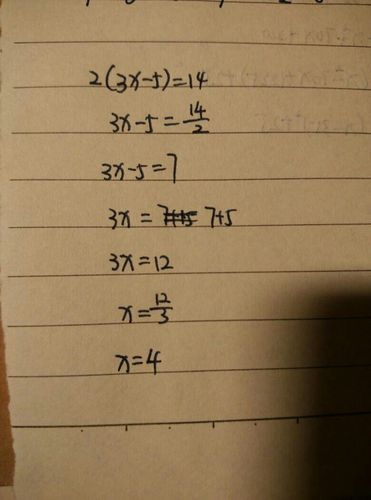 2(3x-5)=14
3x-5=14/2
3x-5=7
3x=7+5
3x=12
x=12/3
x=4